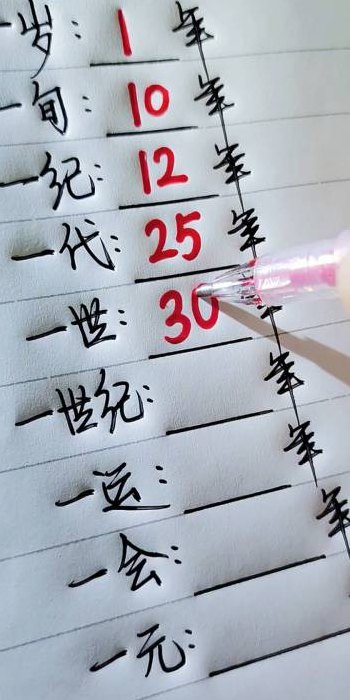 一岁：1年
一旬：10年
一纪：12年
一代：25年
一世：30年
一世纪：年
一运：年
一会：年
一元：